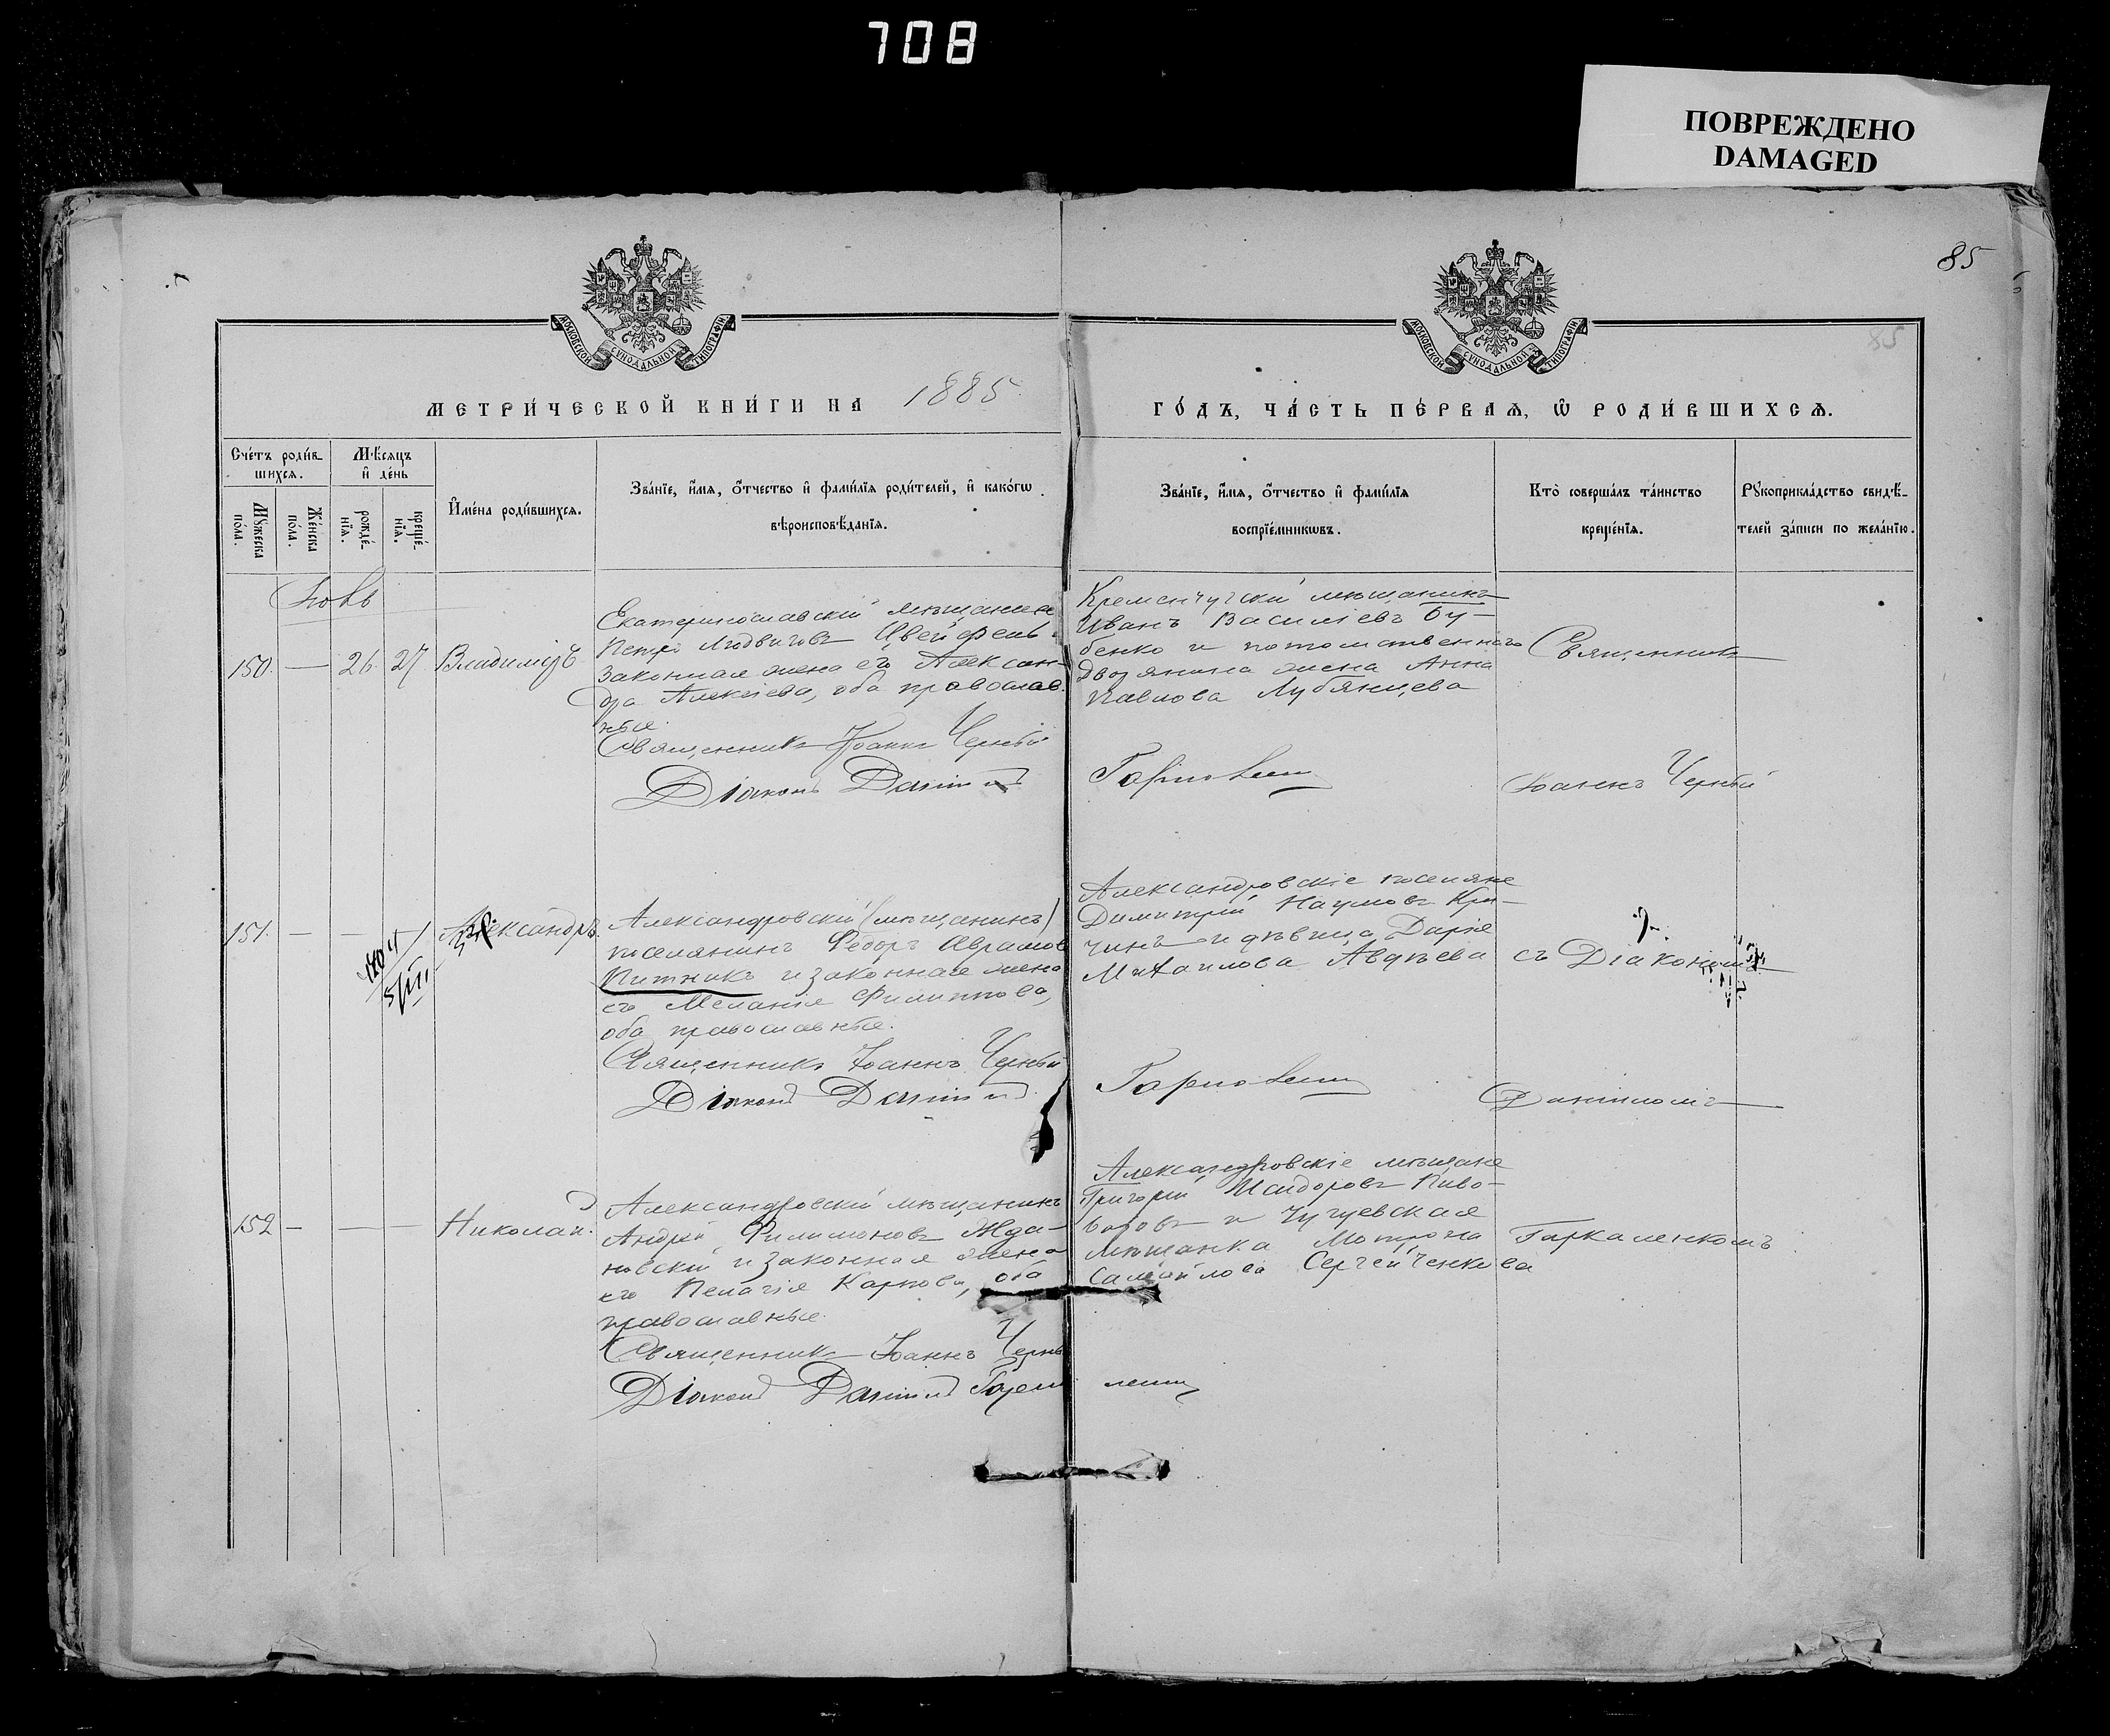 708
ПОВРЕЖДЕНО
DAMAGED
85
85
МОСКОВСКОЙ СѴНОДАЛЬНОЙ ТИПОГРАФІИ
МОСКОВСКОЙ СѴНОДАЛЬНОЙ ТИПОГРАФІИ
МЕТРИ́ЧЕСКОЙ КНИ́ГИ НА 1885.
ГО́ДЪ, ЧА́СТЬ ПЕ́РВАѦ, Ѡ҆ РОДИ́ВШИХСѦ.
Сче́тъ роди́в-
шихсѧ.
Мѣ́сѧцъ
и҆ де́нь
Мꙋ́жеска
по́ла.
Же́нска
по́ла.
рожде́-
нїѧ.
креще́-
нїѧ.
И҆мена̀ роди́вшихсѧ.
Зва́нїе, и҆́мѧ, ѻ҆́тчество и҆ фамі́лїѧ роди́телей, и҆ како́гѡ
вѣроисповѣ́данїѧ.
Зва́нїе, и҆́мѧ, ѻ҆́тчество и҆ фамі́лїѧ
воспрїе́мникѡвъ.
Кто̀ соверша́лъ та́инство
креще́нїѧ.
Рꙋкоприкла́дство свидѣ́-
телей за́писи по жела́нїю.
150. — 26. 27 Владиміръ
Екатеринославскій мѣщанинъ
Петръ Людвиговъ
законная жена его Алексан-
дра Алексіева, оба православ-
ные.
Священникъ Іоаннъ Черный
Діаконъ Даніилъ
Кременчугскій мѣщанинъ
Иванъ Васильевъ Бу-
бенко и потомственнаго
дворянина жена Анна
Павлова Лубянцева
Священникъ
Іоаннъ Черный
151. — — — Александръ.
Александровскій (мѣщанинъ)
поселянинъ Ѳедоръ Аврамов
Питникъ и законная жена
его Меланія Филиппова,
оба православные.
Священникъ Іоаннъ Черный
Діаконъ Даніилъ
Александровскіе поселяне
Димитрій Наумовъ Кри-
чинъ и дѣвица Дарія
Михаилова Авдѣева
съ Діакономъ
Даніиломъ
152 — — — Николай.
Александровскій мѣщанинъ
Андрей Филимоновъ Жда-
новскій и законная жена
его Пелагія Карпова, оба
православные.
Священникъ Іоаннъ Черны
Діаконъ Даніилъ
Александровскіе мѣщане
Григорій Исидоровъ Пиво-
варовъ и Чугуевская
мѣщанка Мотрона
Самойлова Сергейченкова
Гаркаленкомъ